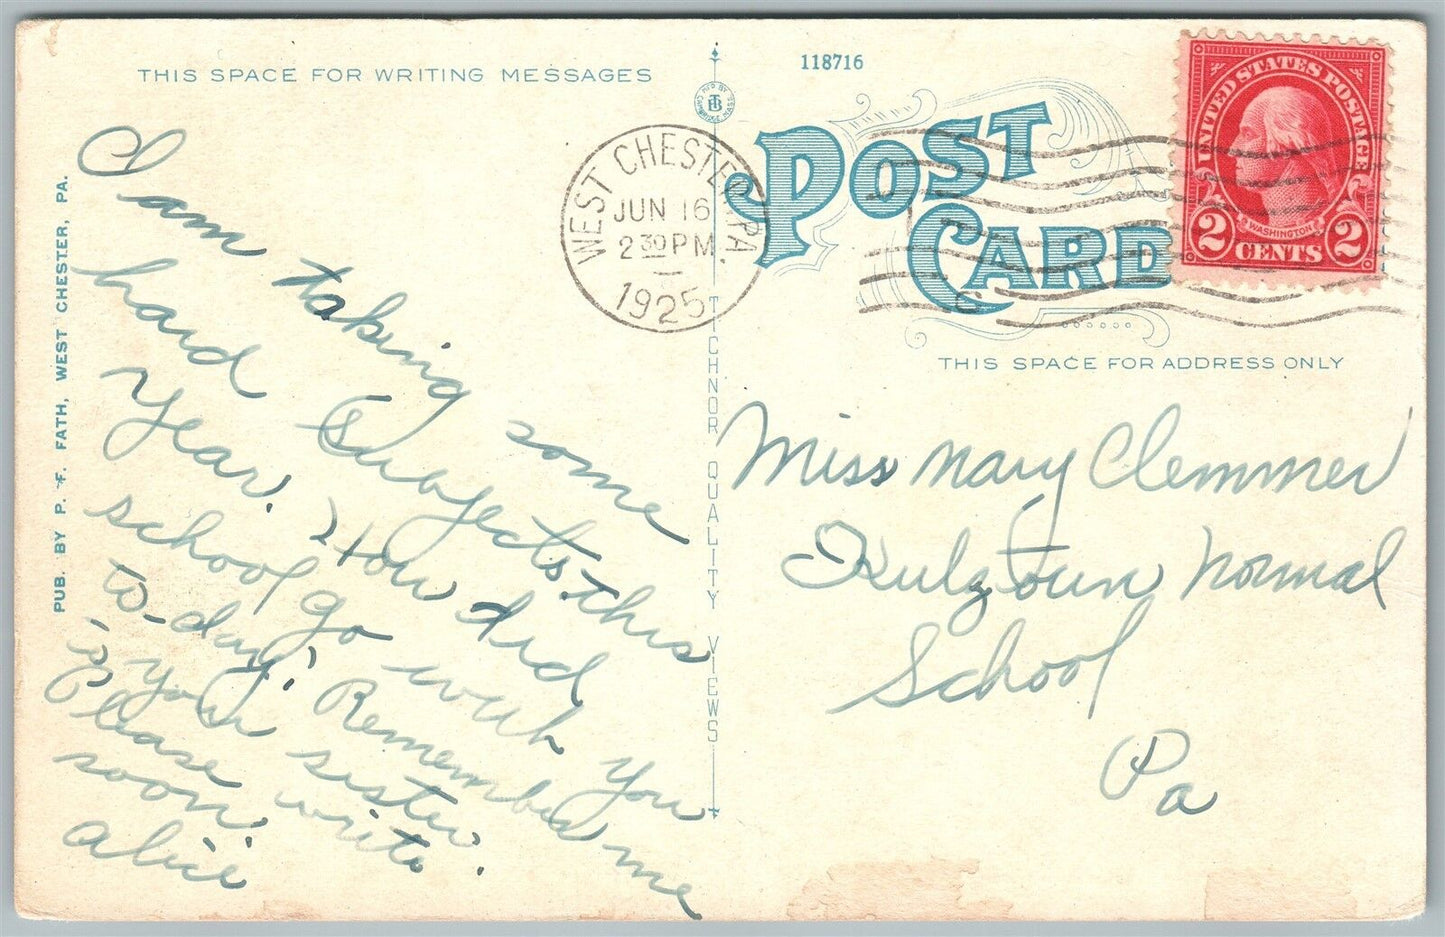 THIS SPACE FOR WRITING MESSAGES
I am taking some
hard subjects this
year. How did
school go with you
to-day? Remember me
to your sister.
Please write
soon.
Alice
PUB. BY P. F. FATH, WEST CHESTER, PA.
MADE BY TICHNOR QUALITY VIEWS
CAMBRIDGE, MASS.
TB
WEST CHESTER, PA.
JUN 16
2 30 PM
1925
118716
POST
CARD
UNITED STATES POSTAGE
WASHINGTON
2 CENTS 2
THIS SPACE FOR ADDRESS ONLY
Miss Mary Clemmer
Kutztown Normal
School
Pa